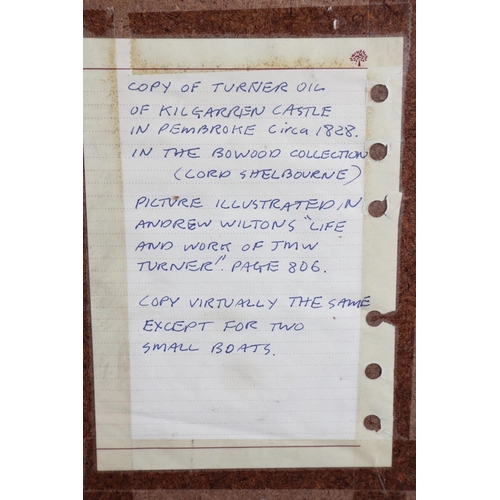 COPY OF TURNER OIL
OF KILGARREN CASTLE
IN PEMBROKE Circa 1828.
IN THE BOWOOD COLLECTION
(LORD SHELBOURNE)
PICTURE ILLUSTRATED IN
ANDREW WILTONS "LIFE
AND WORK OF JMW
TURNER". PAGE 806.
COPY VIRTUALLY THE SAME
EXCEPT FOR TWO
SMALL BOATS.